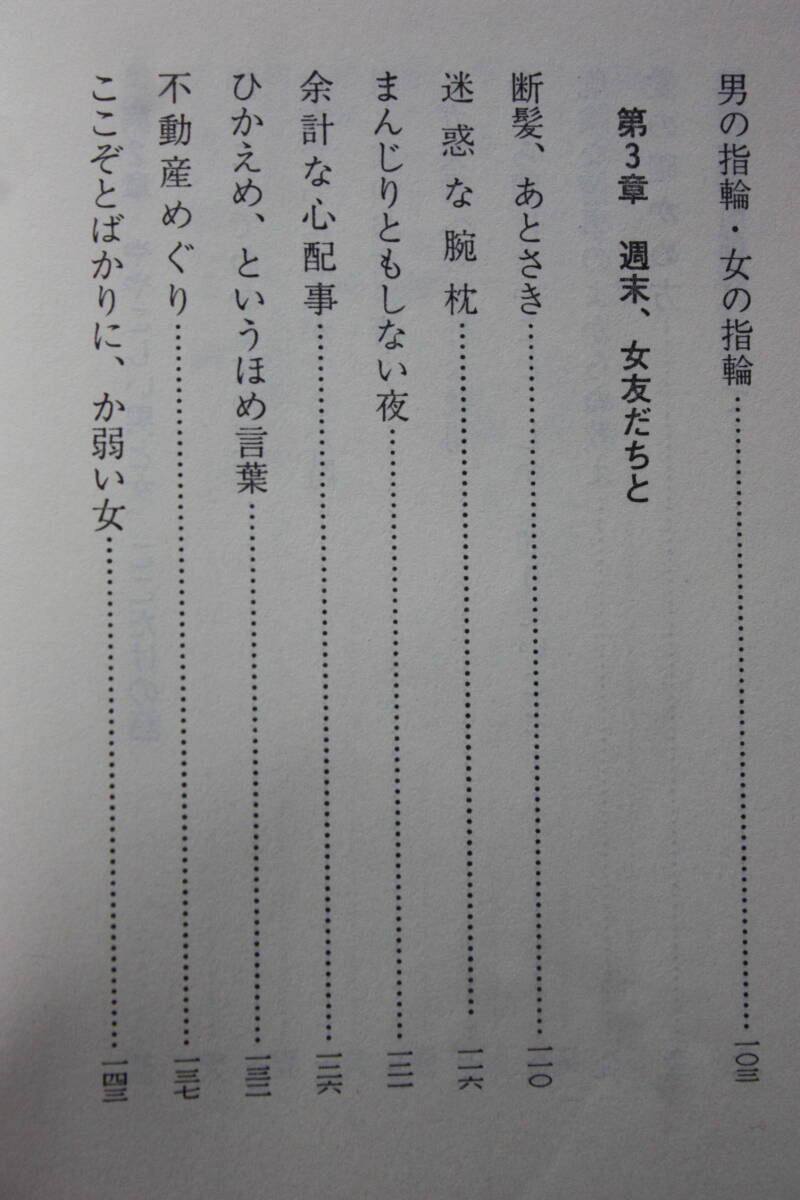 男の指輪・女の指輪……………………一〇三
第3章 週末、女友だちと
断髪、あとさき……………………一一〇
迷惑な腕枕……………………一一六
まんじりともしない夜……………………一二一
余計な心配事……………………一二六
ひかえめ、というほめ言葉……………………一三二
不動産めぐり……………………一三七
ここぞとばかりに、か弱い女……………………一四三